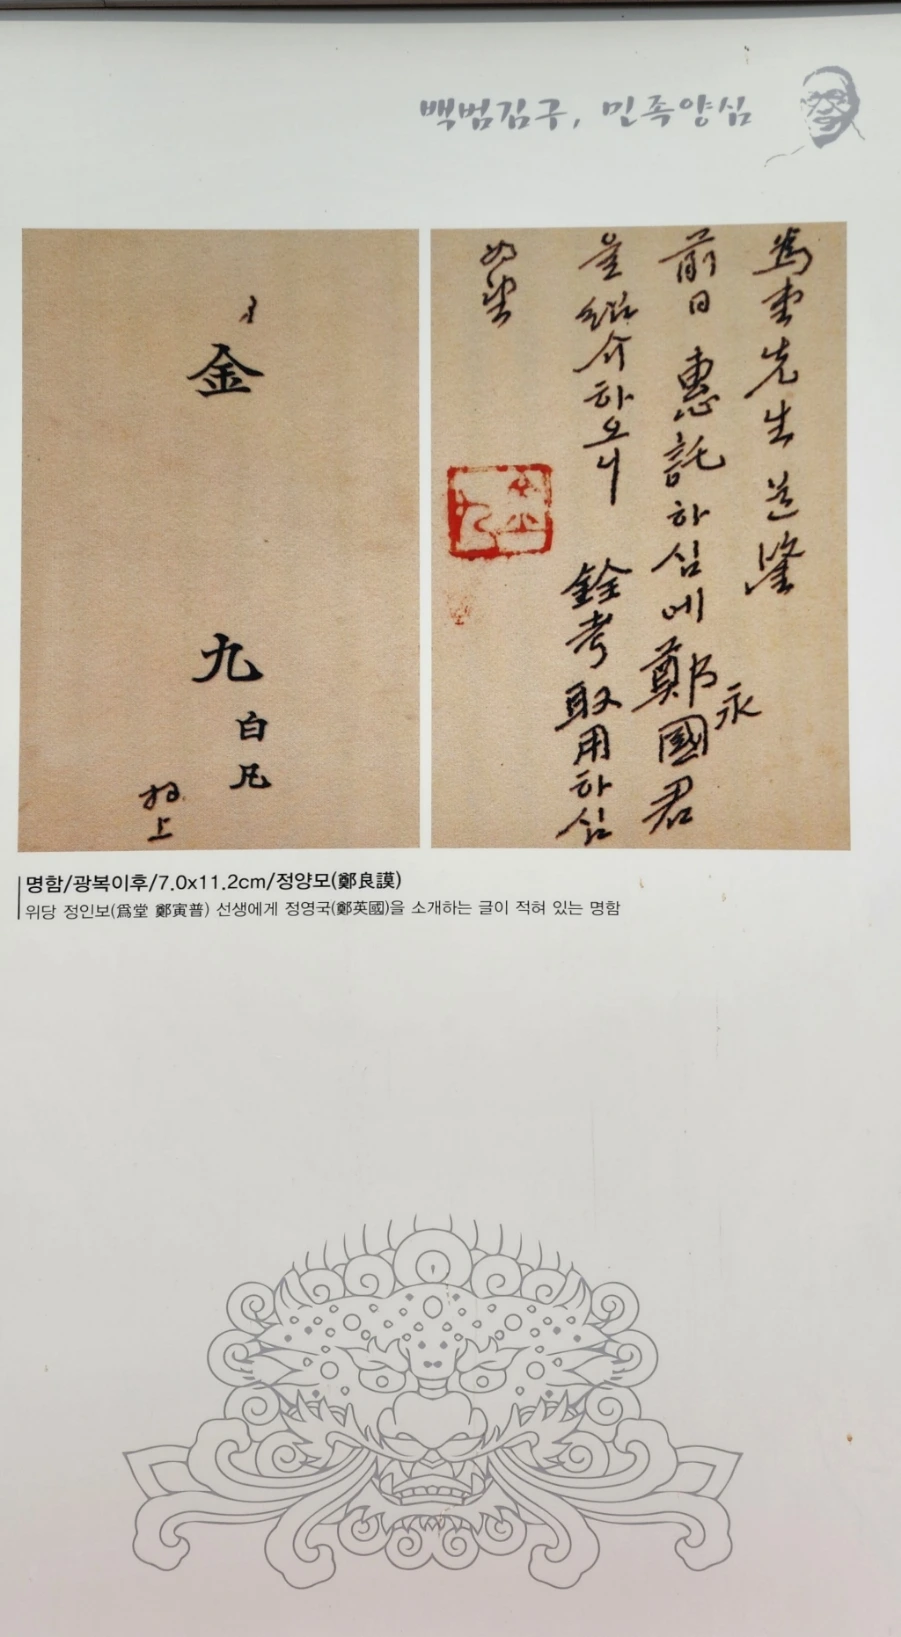 백범김구, 민족양심
金
九
白凡
拜上
爲堂先生 道鑒
前日 惠託하심에 鄭永國君
을 紹介하오니 銓考取用하심
如望
명함/광복이후/7.0x11.2cm/정양모(鄭良謨)
위당 정인보(爲堂 鄭寅普) 선생에게 정영국(鄭英國)을 소개하는 글이 적혀 있는 명함